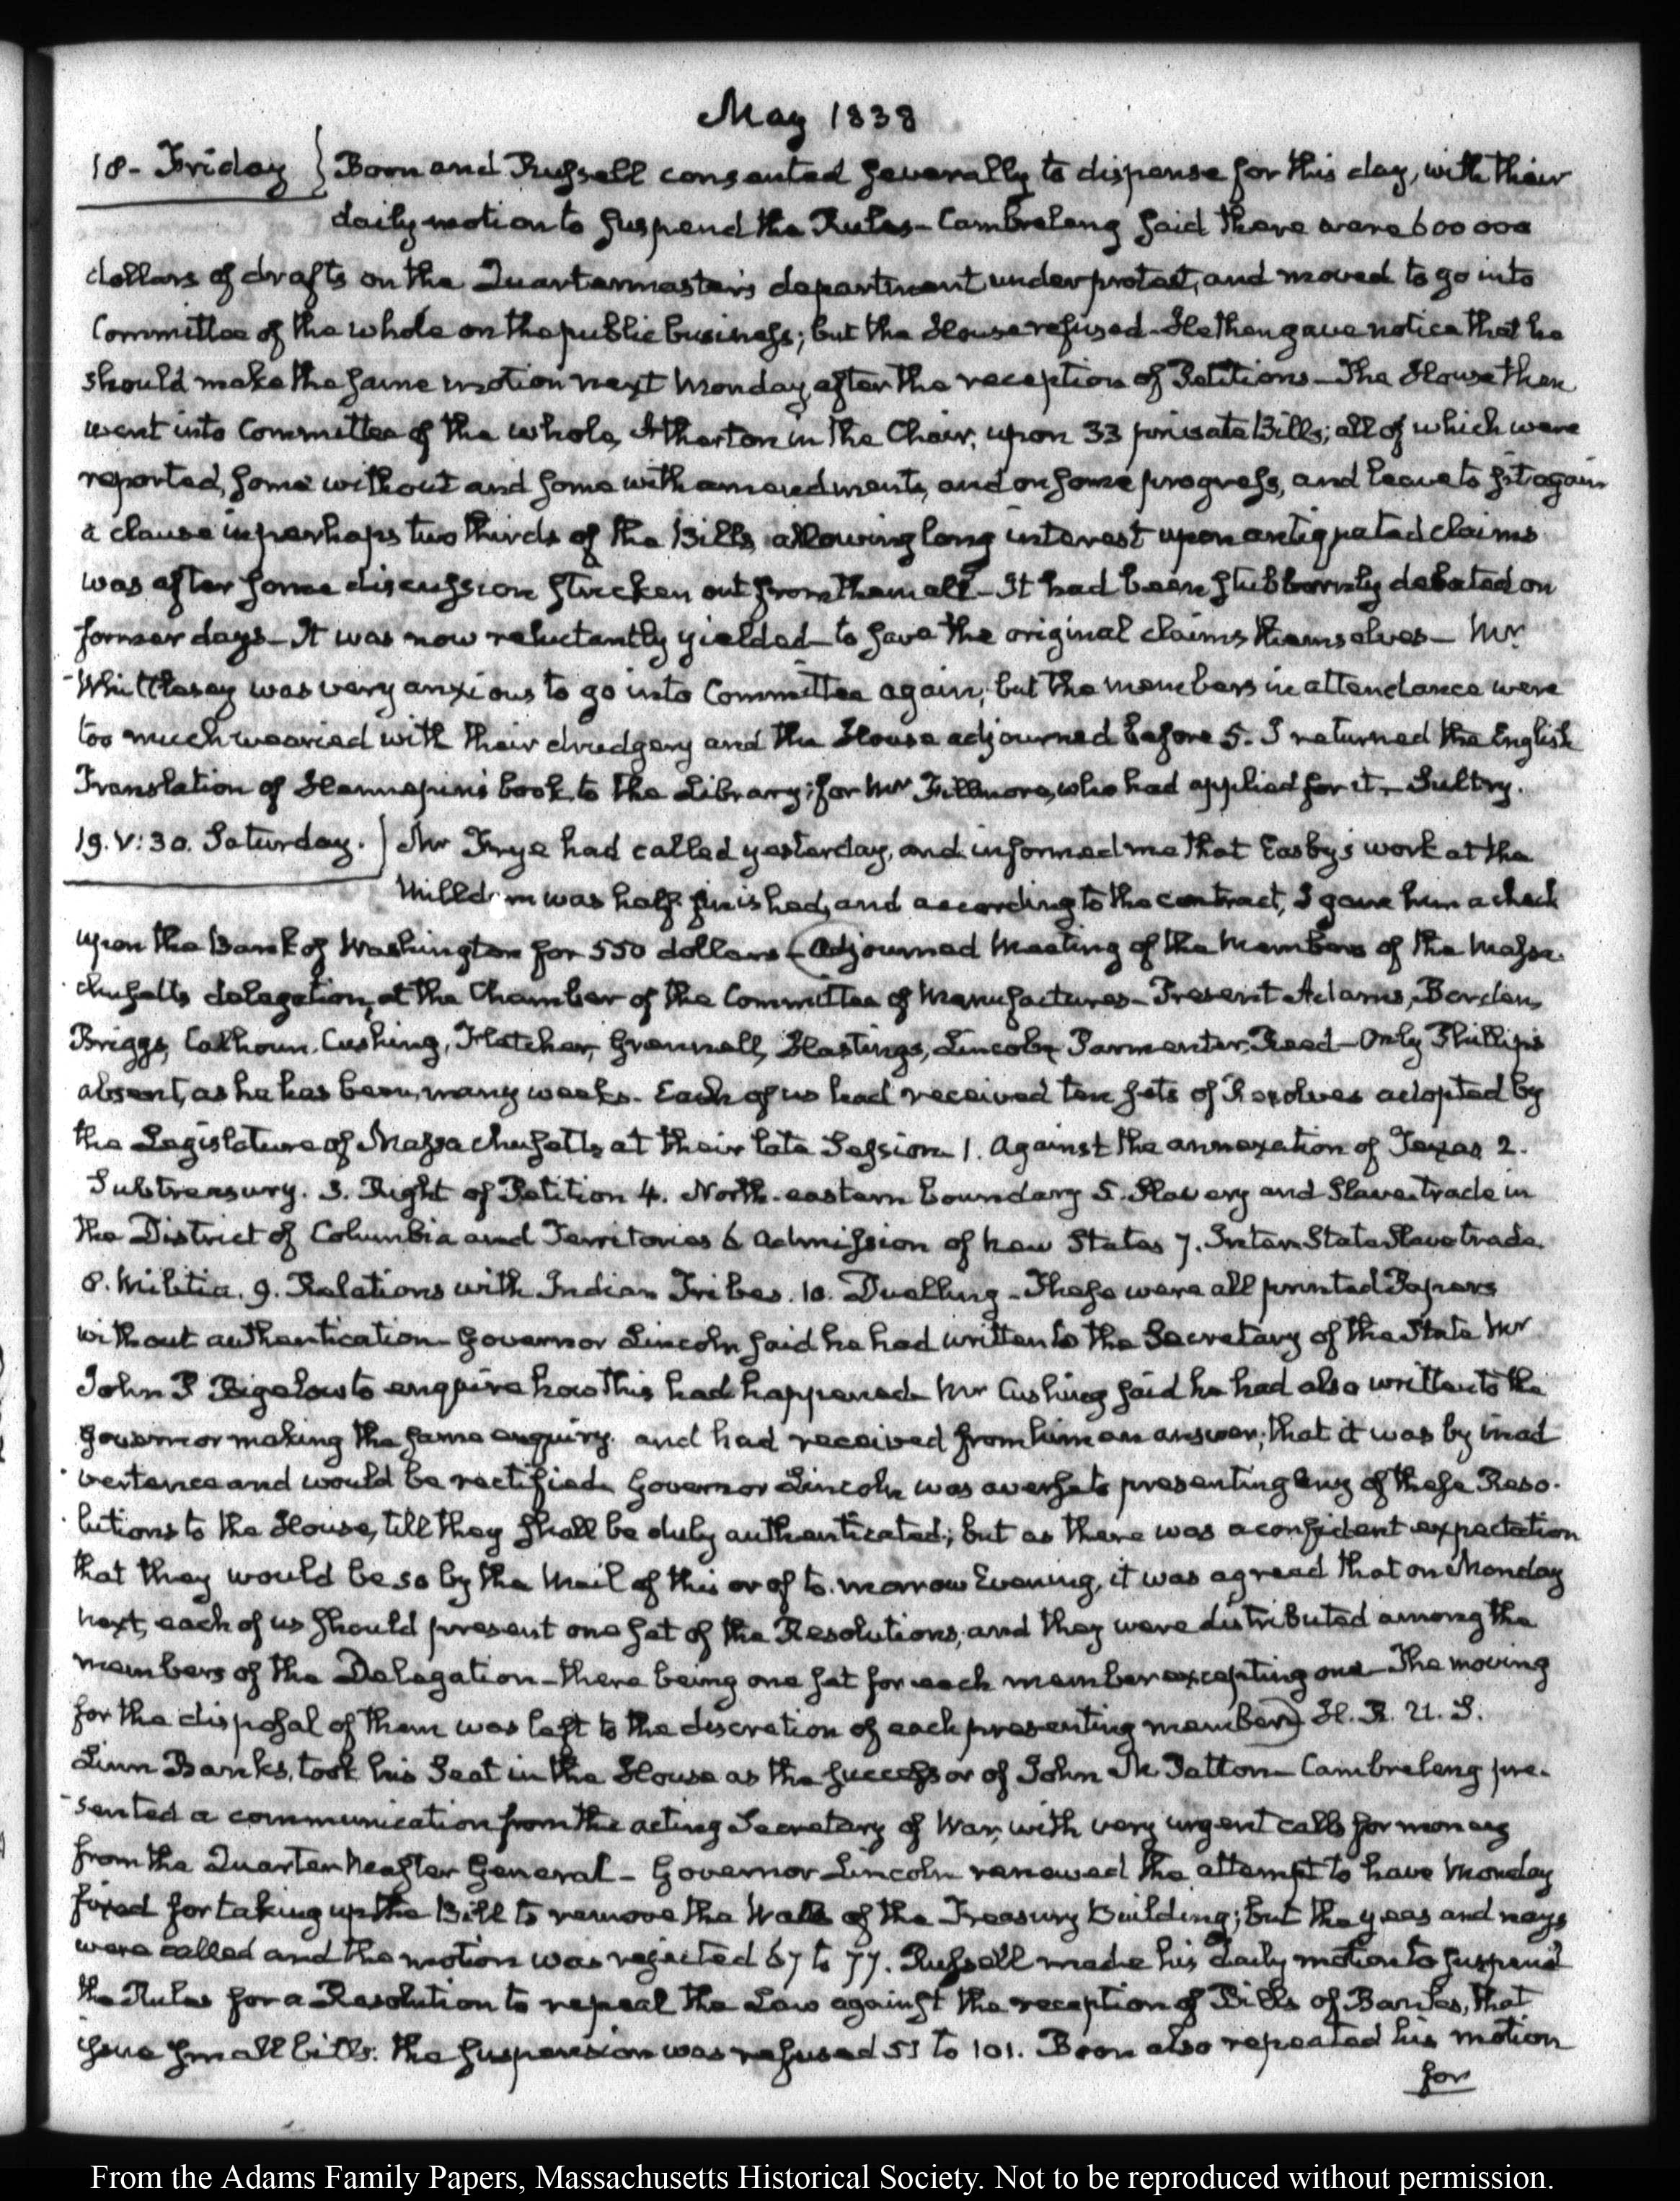 May 1838
18- Friday } Boon and Russell consented severally to dispense for this day, with their
daily motion to suspend the Rules- Cambreleng said there were 600 000
dollars of drafts on the Quartermaster's department under protest, and moved to go into
Committee of the whole on the public business; but the House refused- He then gave notice that he
should make the same motion next Monday, after the reception of Petitions- The House then
went into Committee of the whole, Atherton in the Chair, upon 33 private Bills; all of which were
reported, some without and some with amendments, and on some progress, and leave to sit again
a clause in perhaps two thirds of the Bills allowing long interest upon antiquated claims
was after some discussion stricken out from them all- It had been stubbornly debated on
former days- It was now reluctantly yielded to save the original claims themselves- Mr
Whittlesey was very anxious to go into Committee again; but the members in attendance were
too much wearied with their drudgery and the House adjourned before 5. I returned the English
Translation of Hennepin's book to the Library; for Mr Fillmore, who had applied for it- Sultry.
19. V:30. Saturday. } Mr Frye had called yesterday, and informed me that Easby's work at the
Milldam was half finished, and according to the contract, I gave him a check
upon the Bank of Washington for 550 dollars- (Adjourned Meeting of the Members of the Massa-
chusetts delegation, at the Chamber of the Committee of Manufactures- Present Adams, Borden,
Briggs, Calhoun, Cushing, Fletcher, Grennell, Hastings, Lincoln, Parmenter, Reed- Only Phillips
absent, as he has been, many weeks- Each of us had received ten sets of Resolves adopted by
the Legislature of Massachusetts at their late Session 1. Against the annexation of Texas 2.
Subtreasury. 3. Right of Petition 4. North-eastern boundary 5. Slavery and Slave trade in
the District of Columbia and Territories 6 Admission of new States 7. Inter State Slave trade
8. Militia. 9. Relations with Indian Tribes. 10. Duelling- These were all printed Papers
without authentication- Governor Lincoln said he had written to the Secretary of the State Mr
John P Bigelow to enquire how this had happened- Mr Cushing said he had also written to the
Governor making the same enquiry. and had received from him an answer; that it was by inad
vertence and would be rectified. Governor Lincoln was averse to presenting any of these Reso-
lutions to the House, till they shall be duly authenticated; but as there was a confident expectation
that they would be so by the Mail of this or of to-morrow Evening, it was agreed that on Monday
next, each of us should present one set of the Resolutions; and they were distributed among the
members of the Delegation- there being one set for each member excepting one- The moving
for the disposal of them was left to the discretion of each presenting member) H. R. U. S.
Linn Banks, took his Seat in the House as the successor of John M Patton- Cambreleng pre-
sented a communication from the acting Secretary of War, with very urgent calls for money
from the Quarter Master General- Governor Lincoln renewed the attempt to have Monday
fixed for taking up the Bill to remove the Walls of the Treasury building; but the yeas and nays
were called and the motion was rejected 67 to 77. Russell made his daily motion to suspend
the Rules for a Resolution to repeal the Law against the reception of Bills of Banks, that
issue small bills. the suspension was refused 51 to 101. Boon also repeated his motion
for
From the Adams Family Papers, Massachusetts Historical Society. Not to be reproduced without permission.